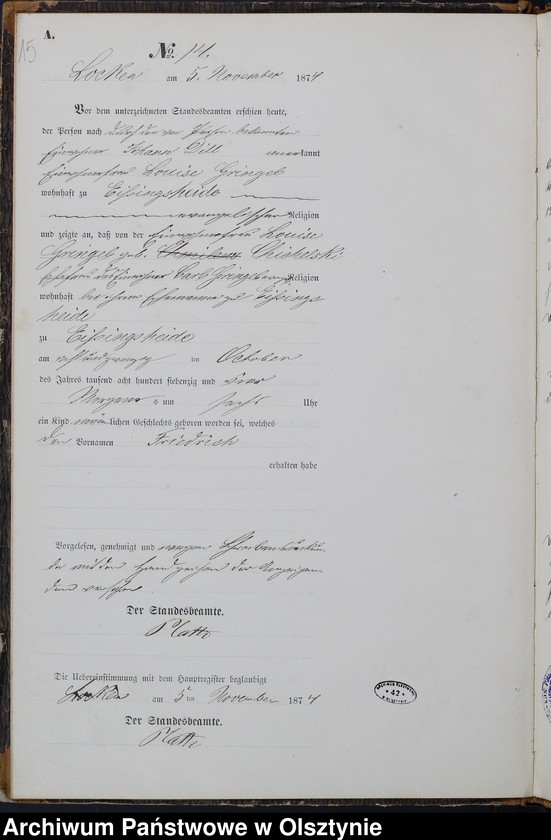 A.
15
No. 14.
Locken am 5. November 1874
Vor dem unterzeichneten Standesbeamten erschien heute,
der Person nach durch den von Person bekannten
Einwohner Johann Dill anerkannt
Einwohnerfrau Louise Gringel
wohnhaft zu Eißingsheide
evangelischer Religion
und zeigte an, daß von der Einwohnerfrau Louise
Gringel geb.
Ehefrau des Einwohner Carl Gringel Religion
wohnhaft bei ihrem Ehemanne zu Eißings
heide
zu Eißingsheide
am acht und zwanzig ten October
des Jahres tausend acht hundert siebenzig und vier
Morgens um sechs Uhr
ein Kind männlichen Geschlechts geboren worden sei, welches
den Vornamen Friedrich
erhalten habe
Vorgelesen, genehmigt und wegen Schreibensunkun-
de mit den Handzeichen der Anzeigen
den versehen
Der Standesbeamte.
Platto
Die Uebereinstimmung mit dem Hauptregister beglaubigt
Locken am 5ten November 1874
Der Standesbeamte.
Platto
42
Archiwum Państwowe w Olsztynie